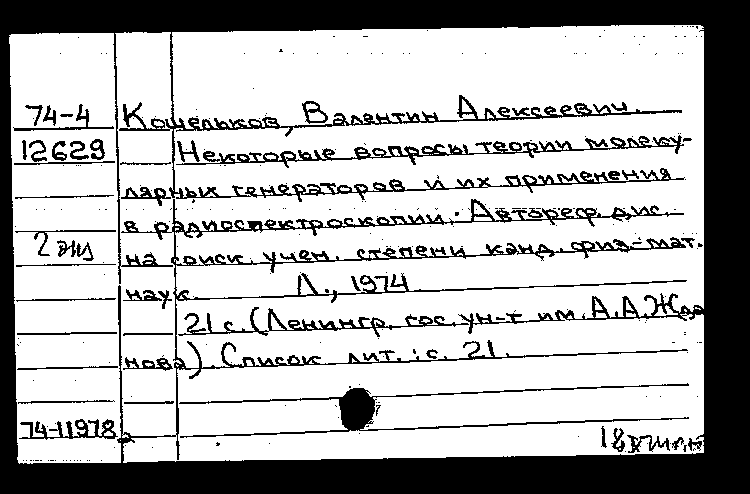 74-4 Кошельков, Валентин Алексеевич.
12629 Некоторые вопросы теории молеку-
лярных генераторов и их применения
в радиоспектроскопии. Автореф. дис.
2 экз на соиск. учен. степени канд. физ-мат.
наук. Л., 1974
21 с. (Ленингр. гос. ун-т им. А.А. Жда
нова). Список лит.: с. 21.
74-11978
18